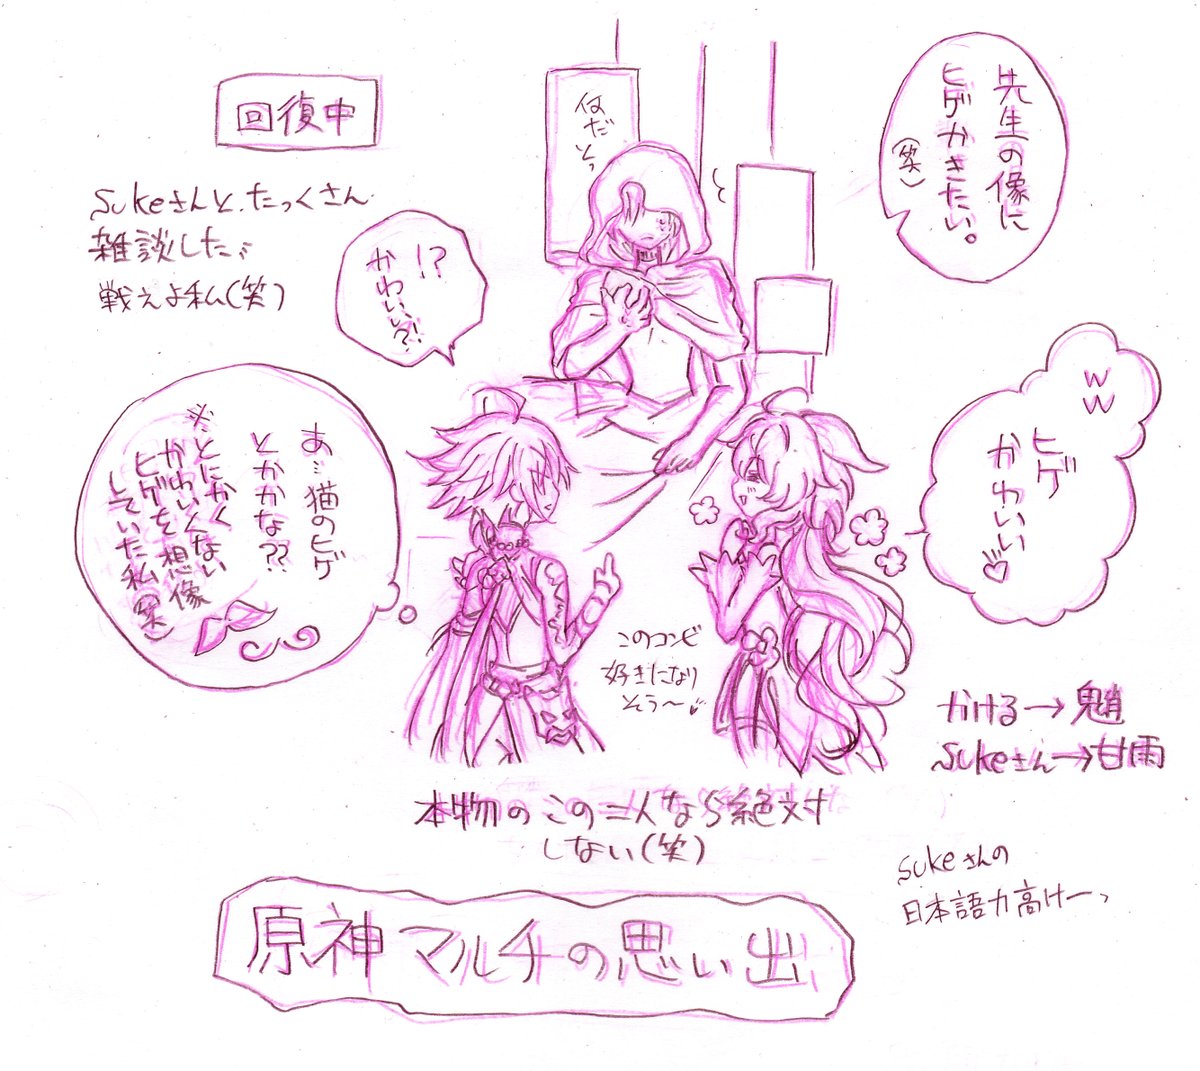 回復中
Sukeさんと、たっくさん
雑談した〃
戦えよ私(笑)
何だそっ
先生の像に
ヒゲかきたい。
(笑)
!?
かわいい?!
ww
ヒゲ
かわいい♡
あ…猫のヒゲ
とかかな??
※とにかく
かわいくない
ヒゲを想像
していた私(笑)
このコンビ
好きになり
そう〜♡
かける→魈
Sukeさん→甘雨
本物のこの二人なら絶対
しない(笑)
sukeさんの
日本語力高けーっ
原神マルチの思い出